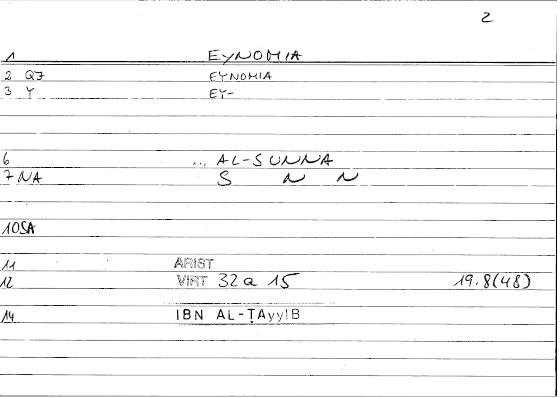 2
1 EYNOMIA
2 Q7 EYNOMIA
3 Y EY-
6 ... AL-SUNNA
7 NA S N N
10 SA
11 ARIST
12 VIRT 32 a 15 19.8(48)
14 IBN AL-ṬAyyIB